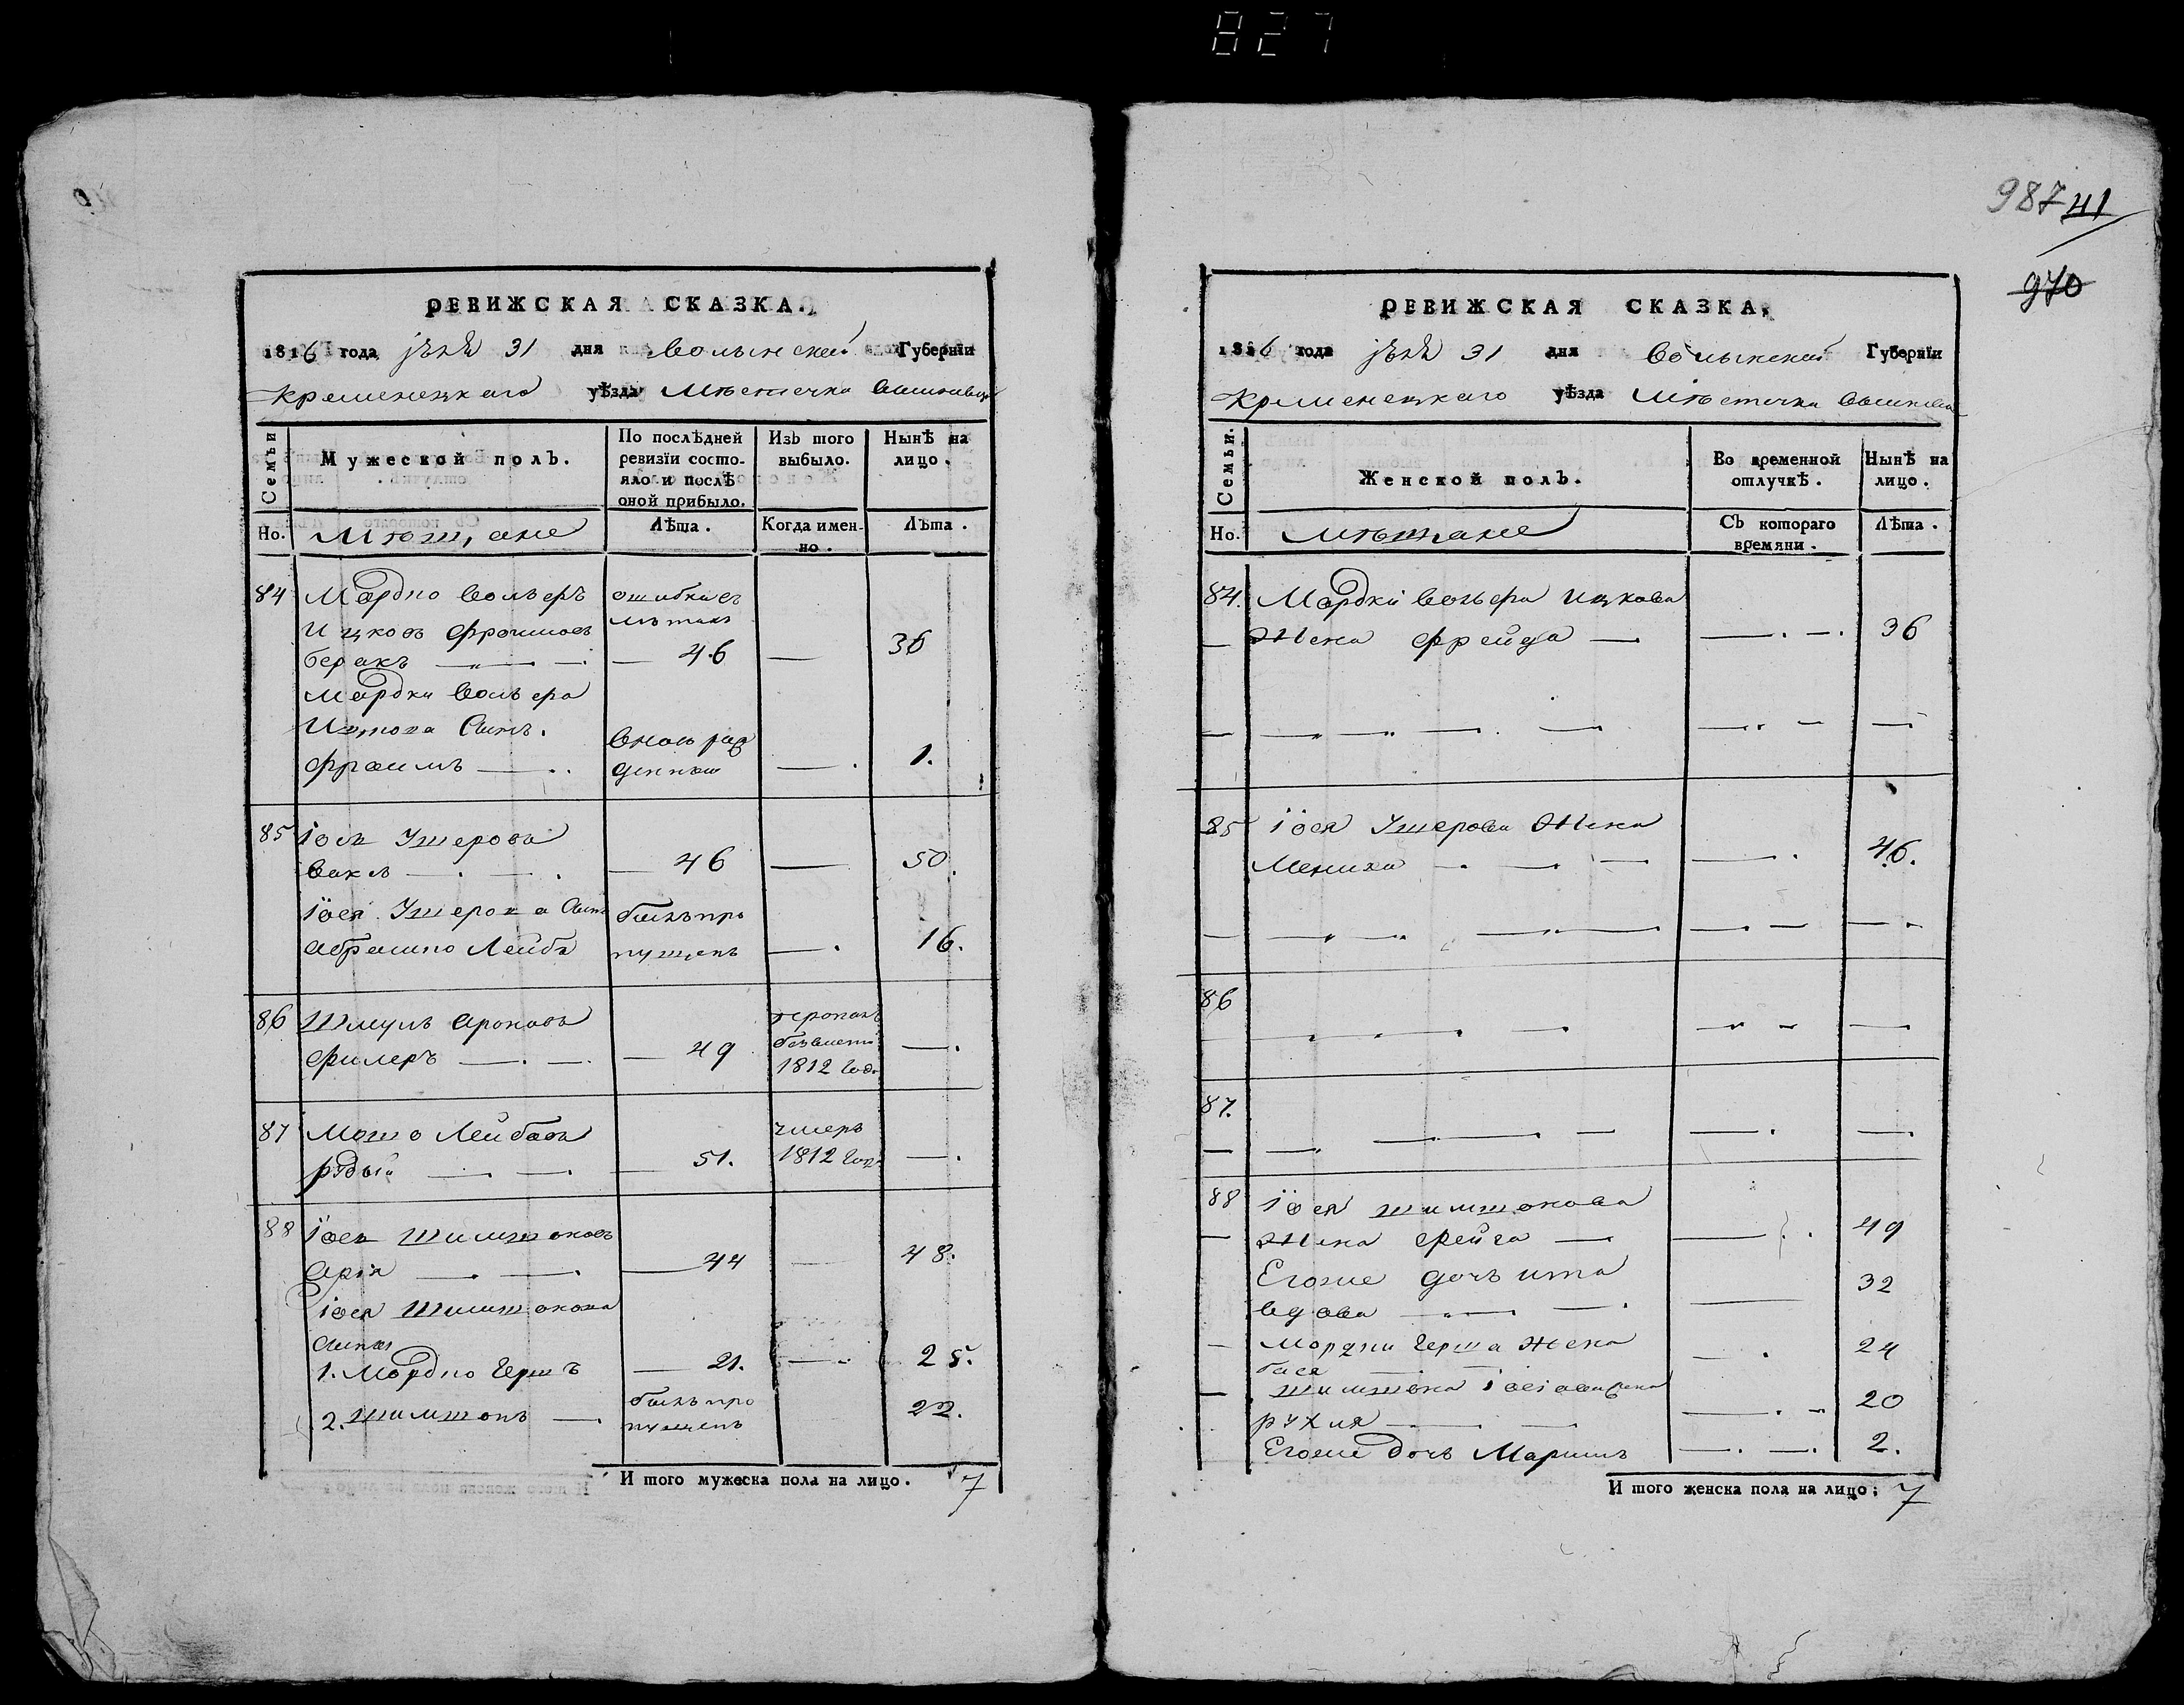 827
РЕВИЖСКАЯ СКАЗКА.
1816 года 31 дня Волынской Губернїи
Кременецкаго уѣзда Мѣстечка
Семьи
Мужеской полъ.
По послѣдней ревизїи состояло и послѣ оной прибыло.
Изъ того выбыло.
Нынѣ на лицо.
Но.
Мѣщане
Лѣта.
Когда именно.
Лѣта.
84 Мордко Вольеръ ошибка въ
Ицковъ Фроимов лѣтахъ
беракъ 46 36
Мордки Вольера
Ицкова Сынъ. вновь рож
Фроимъ денный 1.
85 Іось Умеровъ
Ваксъ 46 50
Іося Умерова Сынъ былъ про
Абрамко Лейба пущенъ 16.
86 Шмуль Ароновъ
безвести
филеръ 49 1812 года
87 Мошко Лейбовъ умеръ
рудый 51. 1812 года
88 Іось Шимшоновъ
Арія 44 48.
Іося Шимшонова
Сыновья
1. Мордко Гершъ 21. 25.
2. Шимшонъ былъ про
пущенъ 22.
И того мужеска пола на лицо. 7
987 41
970
РЕВИЖСКАЯ СКАЗКА.
1816 года 31 дня Волынской Губернїи
Кременецкаго уѣзда Мѣстечка
Семьи.
Женской полъ.
Во временной отлучкѣ.
Нынѣ на лицо.
Но.
Мѣщане
Съ котораго времяни.
Лѣта.
84. Мордки Вольера Ицкова
Жена Фрейда 36
85 Іося Умерова Жена
Мениха 46.
86
87.
88 Іося Шимшонова
Жена Фейга 49
Егоже дочь ита
вдова 32
Мордки Герша Жена
бася 24
Шимшона Іосіова жена
рухля 20
Егоже дочь Маримъ 2.
И того женска пола на лицо; 7